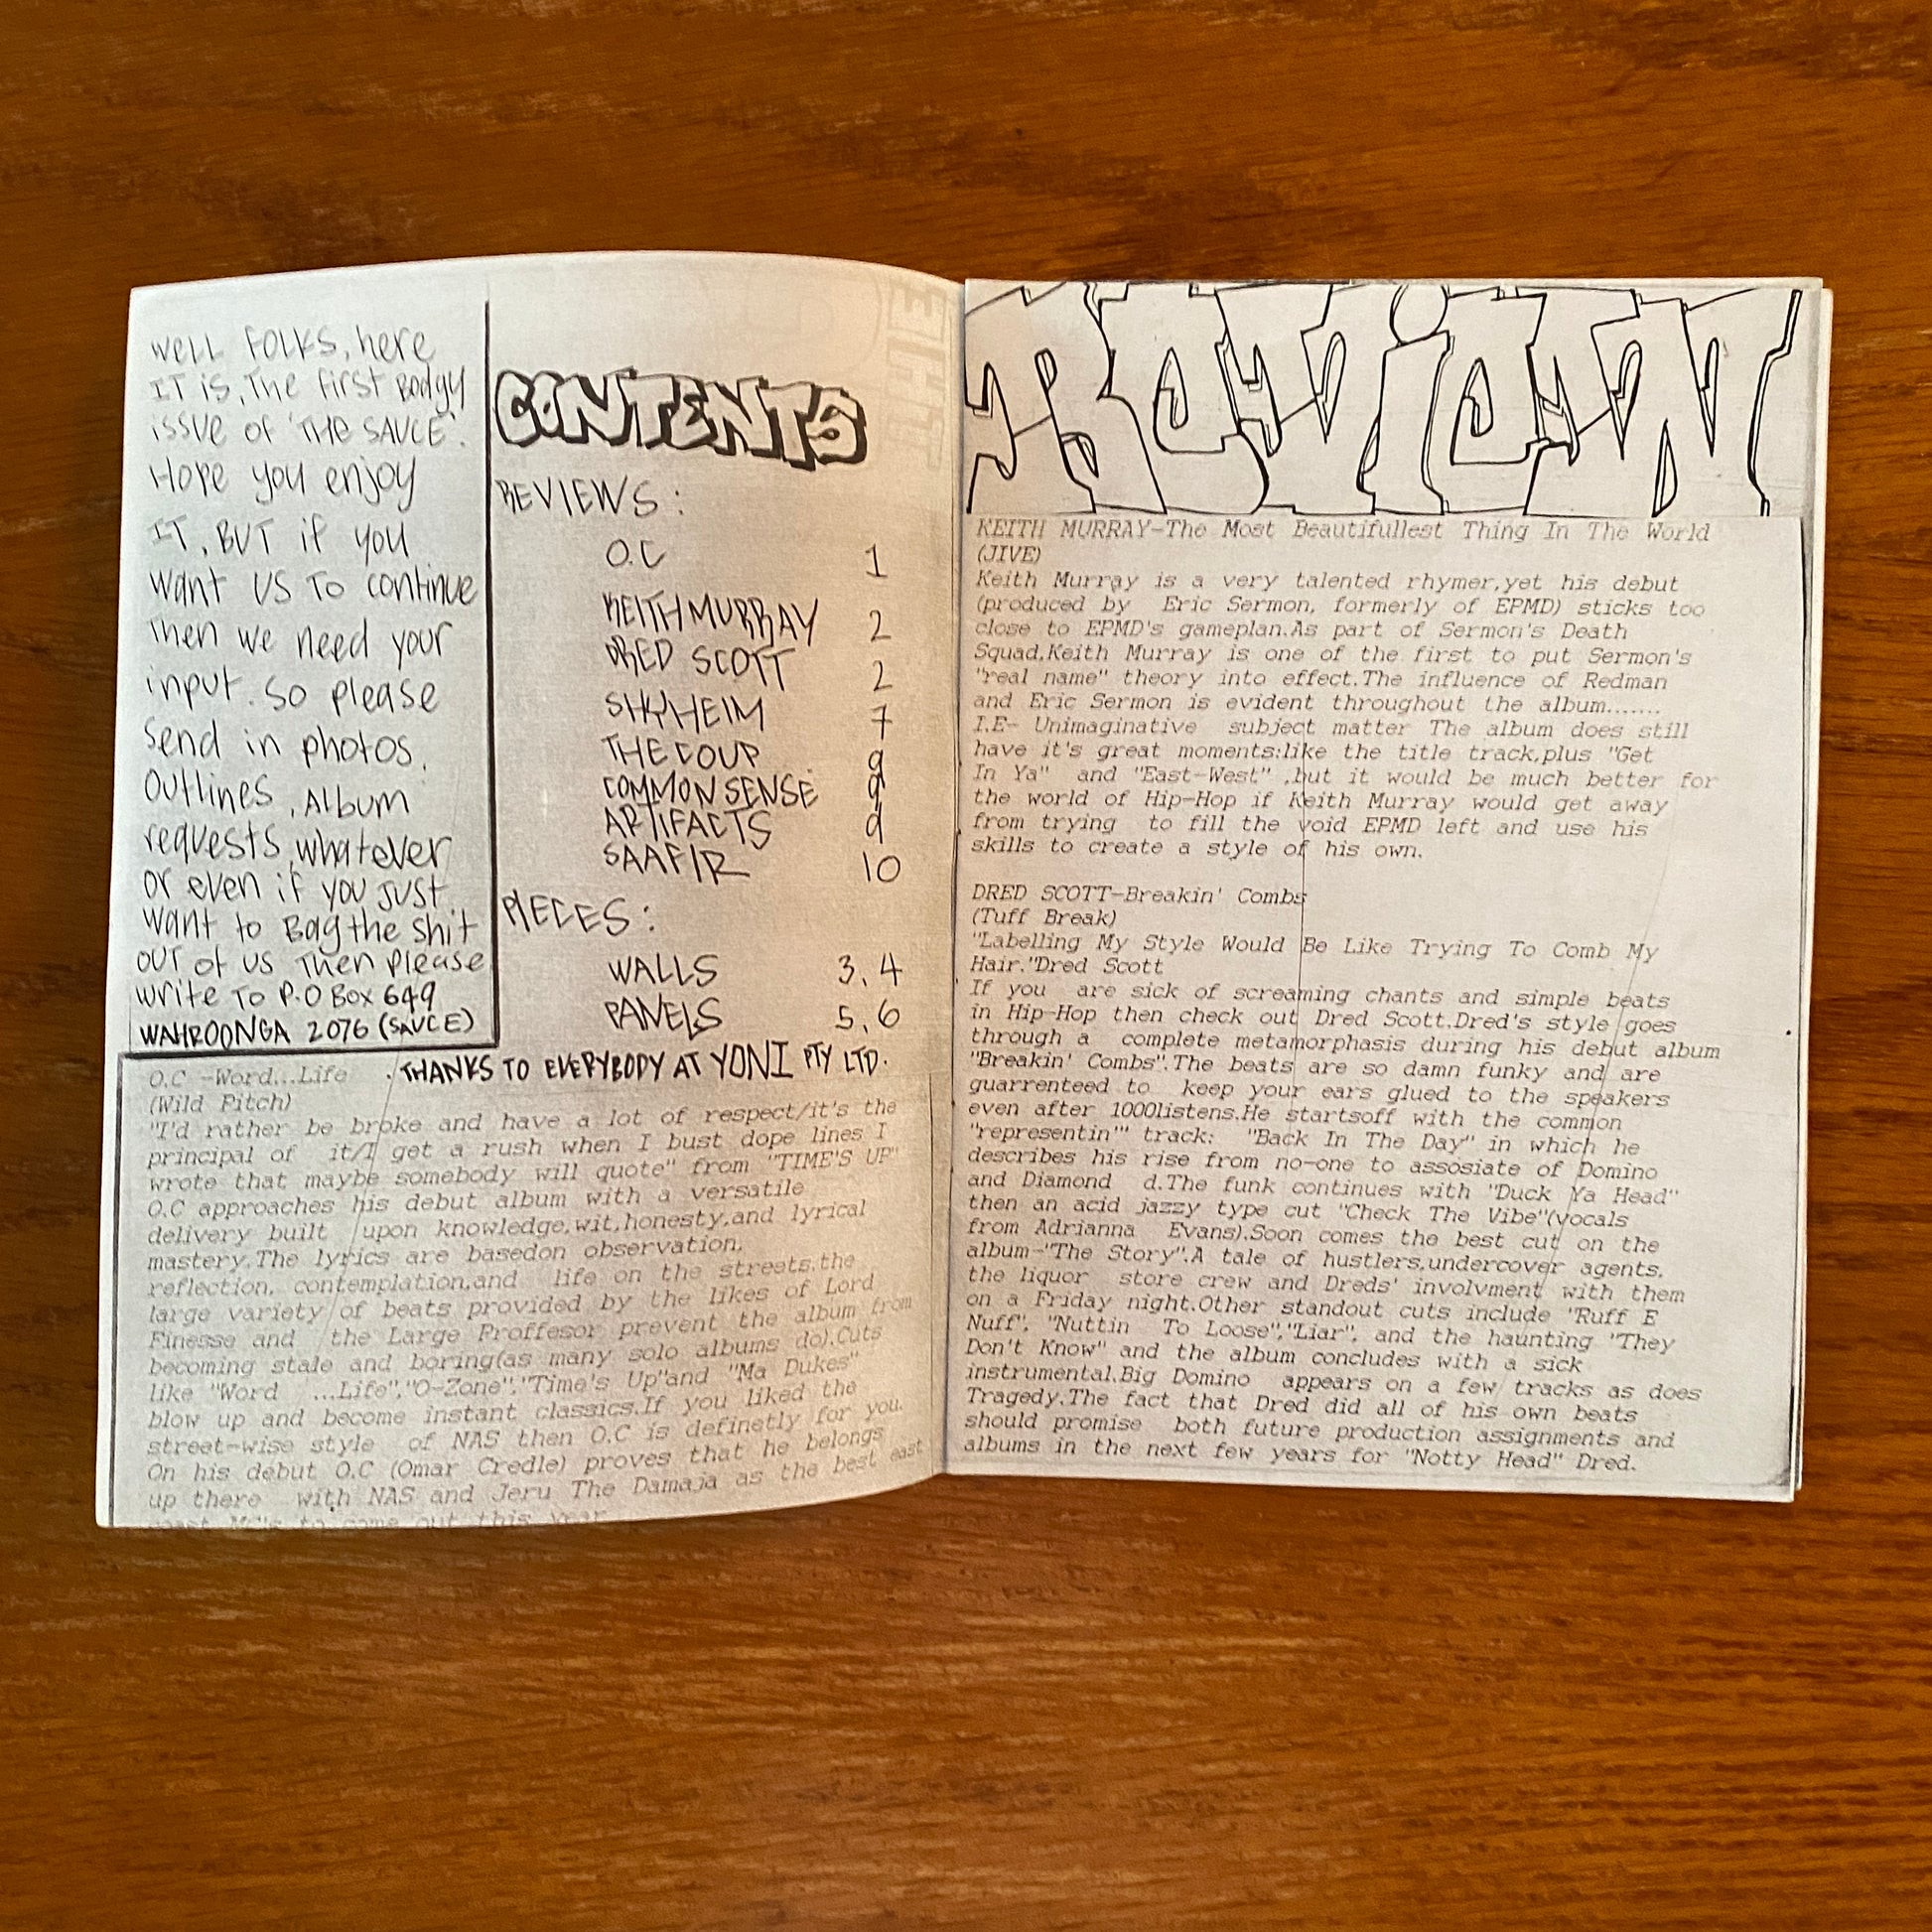 WELL FOLKS, here
IT is, The first Bodgy
issue of 'THE SAUCE'.
Hope you enjoy
IT, BUT if you
want US To continue
Then we need your
input. So please
send in photos,
OUTLINES, ALBUM
requests, whatever
or even if you JUST
want to Bag the shit
OUT of us Then please
write To P.O Box 649
WAHROONGA 2076 (SAUCE)
CONTENTS
REVIEWS:
O.C 1
KEITH MURRAY 2
DRED SCOTT 2
SHYHEIM 7
THE COUP 9
COMMON SENSE 9
ARTIFACTS 9
SAAFIR 10
PIECES:
WALLS 3,4
PANELS 5,6
. THANKS TO EVERYBODY AT YONI PTY LTD.
O.C -Word...Life
(Wild Pitch)
"I'd rather be broke and have a lot of respect/it's the
principal of it/I get a rush when I bust dope lines I
wrote that maybe somebody will quote" from "TIME'S UP"
O.C approaches his debut album with a versatile
delivery built upon knowledge,wit,honesty,and lyrical
mastery.The lyrics are basedon observation,
reflection, contemplation,and life on the streets.the
large variety of beats provided by the likes of Lord
Finesse and the Large Proffesor prevent the album from
becoming stale and boring(as many solo albums do).Cuts
like "Word ...Life","O-Zone","Time's Up"and "Ma Dukes"
blow up and become instant classics.If you liked the
street-wise style of NAS then O.C is definetly for you.
On his debut O.C (Omar Credle) proves that he belongs
up there with NAS and Jeru The Damaja as the best east
coast MC's to come out this year
KEITH MURRAY-The Most Beautifullest Thing In The World
(JIVE)
Keith Murray is a very talented rhymer,yet his debut
(produced by Eric Sermon, formerly of EPMD) sticks too
close to EPMD's gameplan.As part of Sermon's Death
Squad,Keith Murray is one of the first to put Sermon's
"real name" theory into effect.The influence of Redman
and Eric Sermon is evident throughout the album.......
I.E- Unimaginative subject matter The album does still
have it's great moments:like the title track,plus "Get
In Ya" and "East-West" ,but it would be much better for
the world of Hip-Hop if Keith Murray would get away
from trying to fill the void EPMD left and use his
skills to create a style of his own.
DRED SCOTT-Breakin' Combs
(Tuff Break)
"Labelling My Style Would Be Like Trying To Comb My
Hair."Dred Scott
If you are sick of screaming chants and simple beats
in Hip-Hop then check out Dred Scott.Dred's style goes
through a complete metamorphasis during his debut album
"Breakin' Combs".The beats are so damn funky and are
guarrenteed to keep your ears glued to the speakers
even after 1000listens.He startsoff with the common
"representin'" track: "Back In The Day" in which he
describes his rise from no-one to assosiate of Domino
and Diamond d.The funk continues with "Duck Ya Head"
then an acid jazzy type cut "Check The Vibe"(vocals
from Adrianna Evans).Soon comes the best cut on the
album-"The Story".A tale of hustlers,undercover agents,
the liquor store crew and Dreds' involvment with them
on a Friday night.Other standout cuts include "Ruff E
Nuff", "Nuttin To Loose","Liar", and the haunting "They
Don't Know" and the album concludes with a sick
instrumental.Big Domino appears on a few tracks as does
Tragedy.The fact that Dred did all of his own beats
should promise both future production assignments and
albums in the next few years for "Notty Head" Dred.